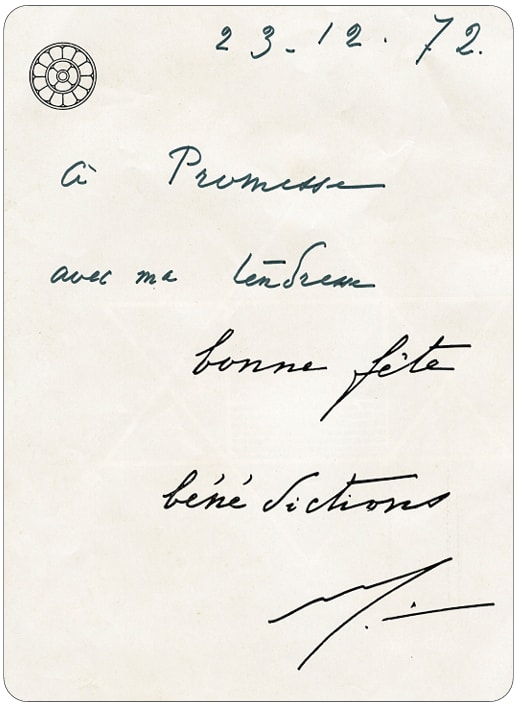 23-12.72.
à Promesse
avec ma tendresse
bonne fête
bénédictions